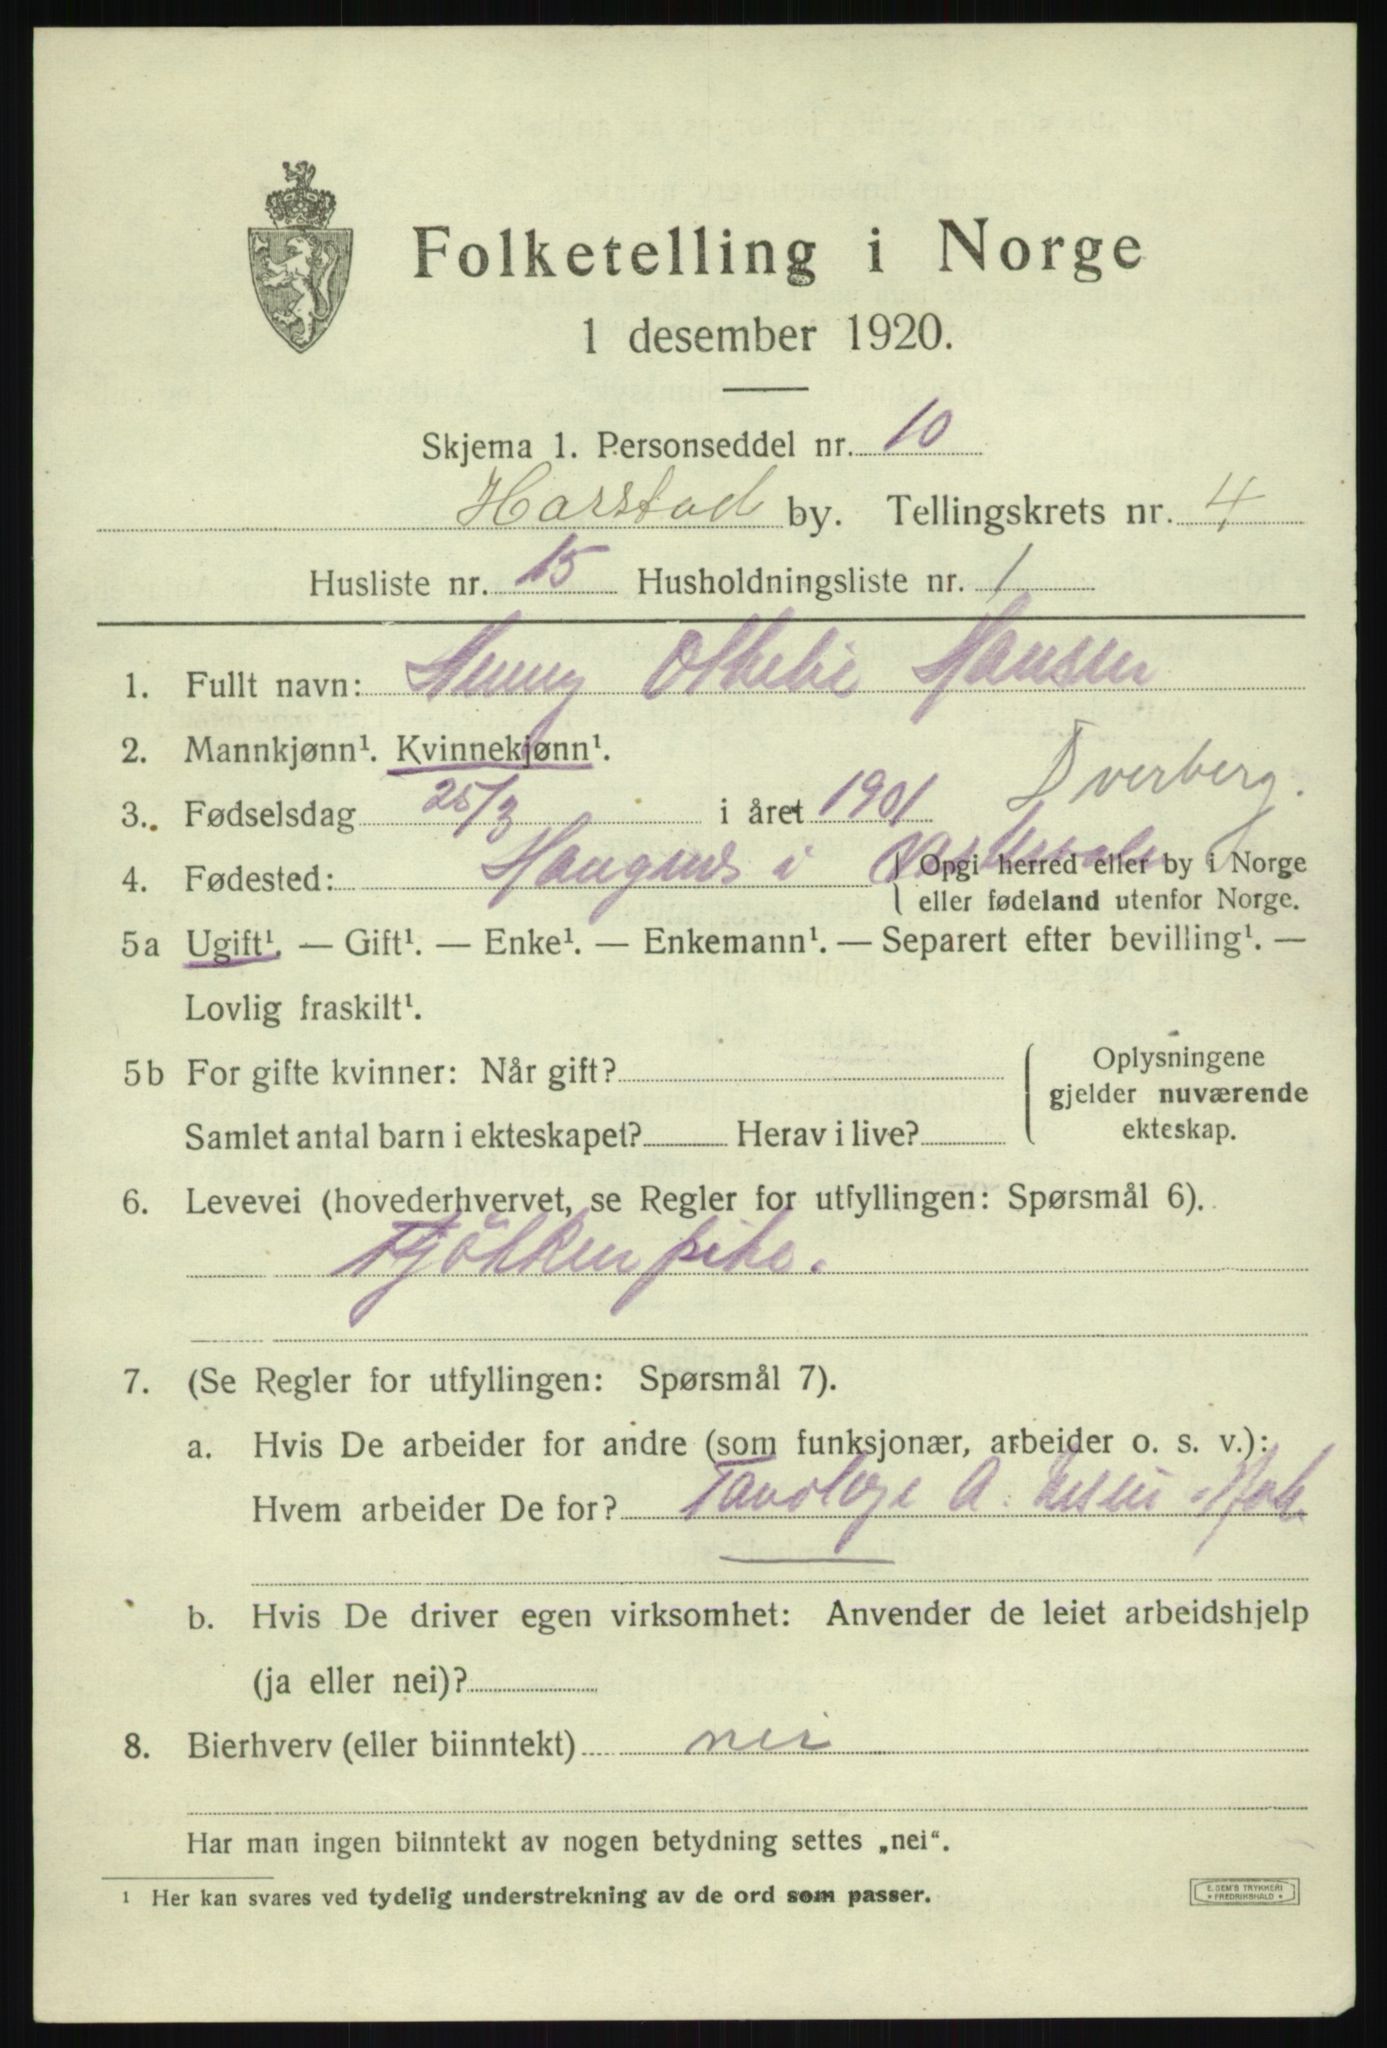 Folketelling i Norge
1 desember 1920.
Skjema 1. Personseddel nr. 10
Harstad by. Tellingskrets nr. 4
Husliste nr. 15 Husholdningsliste nr. 1
1. Fullt navn: Henny Othelie Hansen
2. Mannkjønn¹. Kvinnekjønn¹.
3. Fødselsdag 25/3 i året 1901 Dverberg.
4. Fødested: Haugnes i
Opgi herred eller by i Norge
eller fødeland utenfor Norge.
5a Ugift¹. — Gift¹. — Enke¹. — Enkemann¹. — Separert efter bevilling¹. —
Lovlig fraskilt¹.
5b For gifte kvinner: Når gift?
Samlet antal barn i ekteskapet? Herav i live?
Oplysningene
gjelder nuværende
ekteskap.
6. Levevei (hovederhvervet, se Regler for utfyllingen: Spørsmål 6).
Kjökkenpike.
7. (Se Regler for utfyllingen: Spørsmål 7).
a. Hvis De arbeider for andre (som funksjonær, arbeider o. s. v.):
Hvem arbeider De for? Tandlæge A.
b. Hvis De driver egen virksomhet: Anvender de leiet arbeidshjelp
(ja eller nei)?
8. Bierhverv (eller biinntekt) nei
Har man ingen biinntekt av nogen betydning settes „nei“.
¹ Her kan svares ved tydelig understrekning av de ord som passer.
E. SEM'S TRYKKERI
* FREDRIKSHALD *